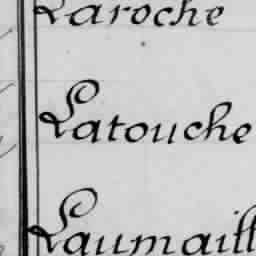 Laroche
Latouche
Laumaill